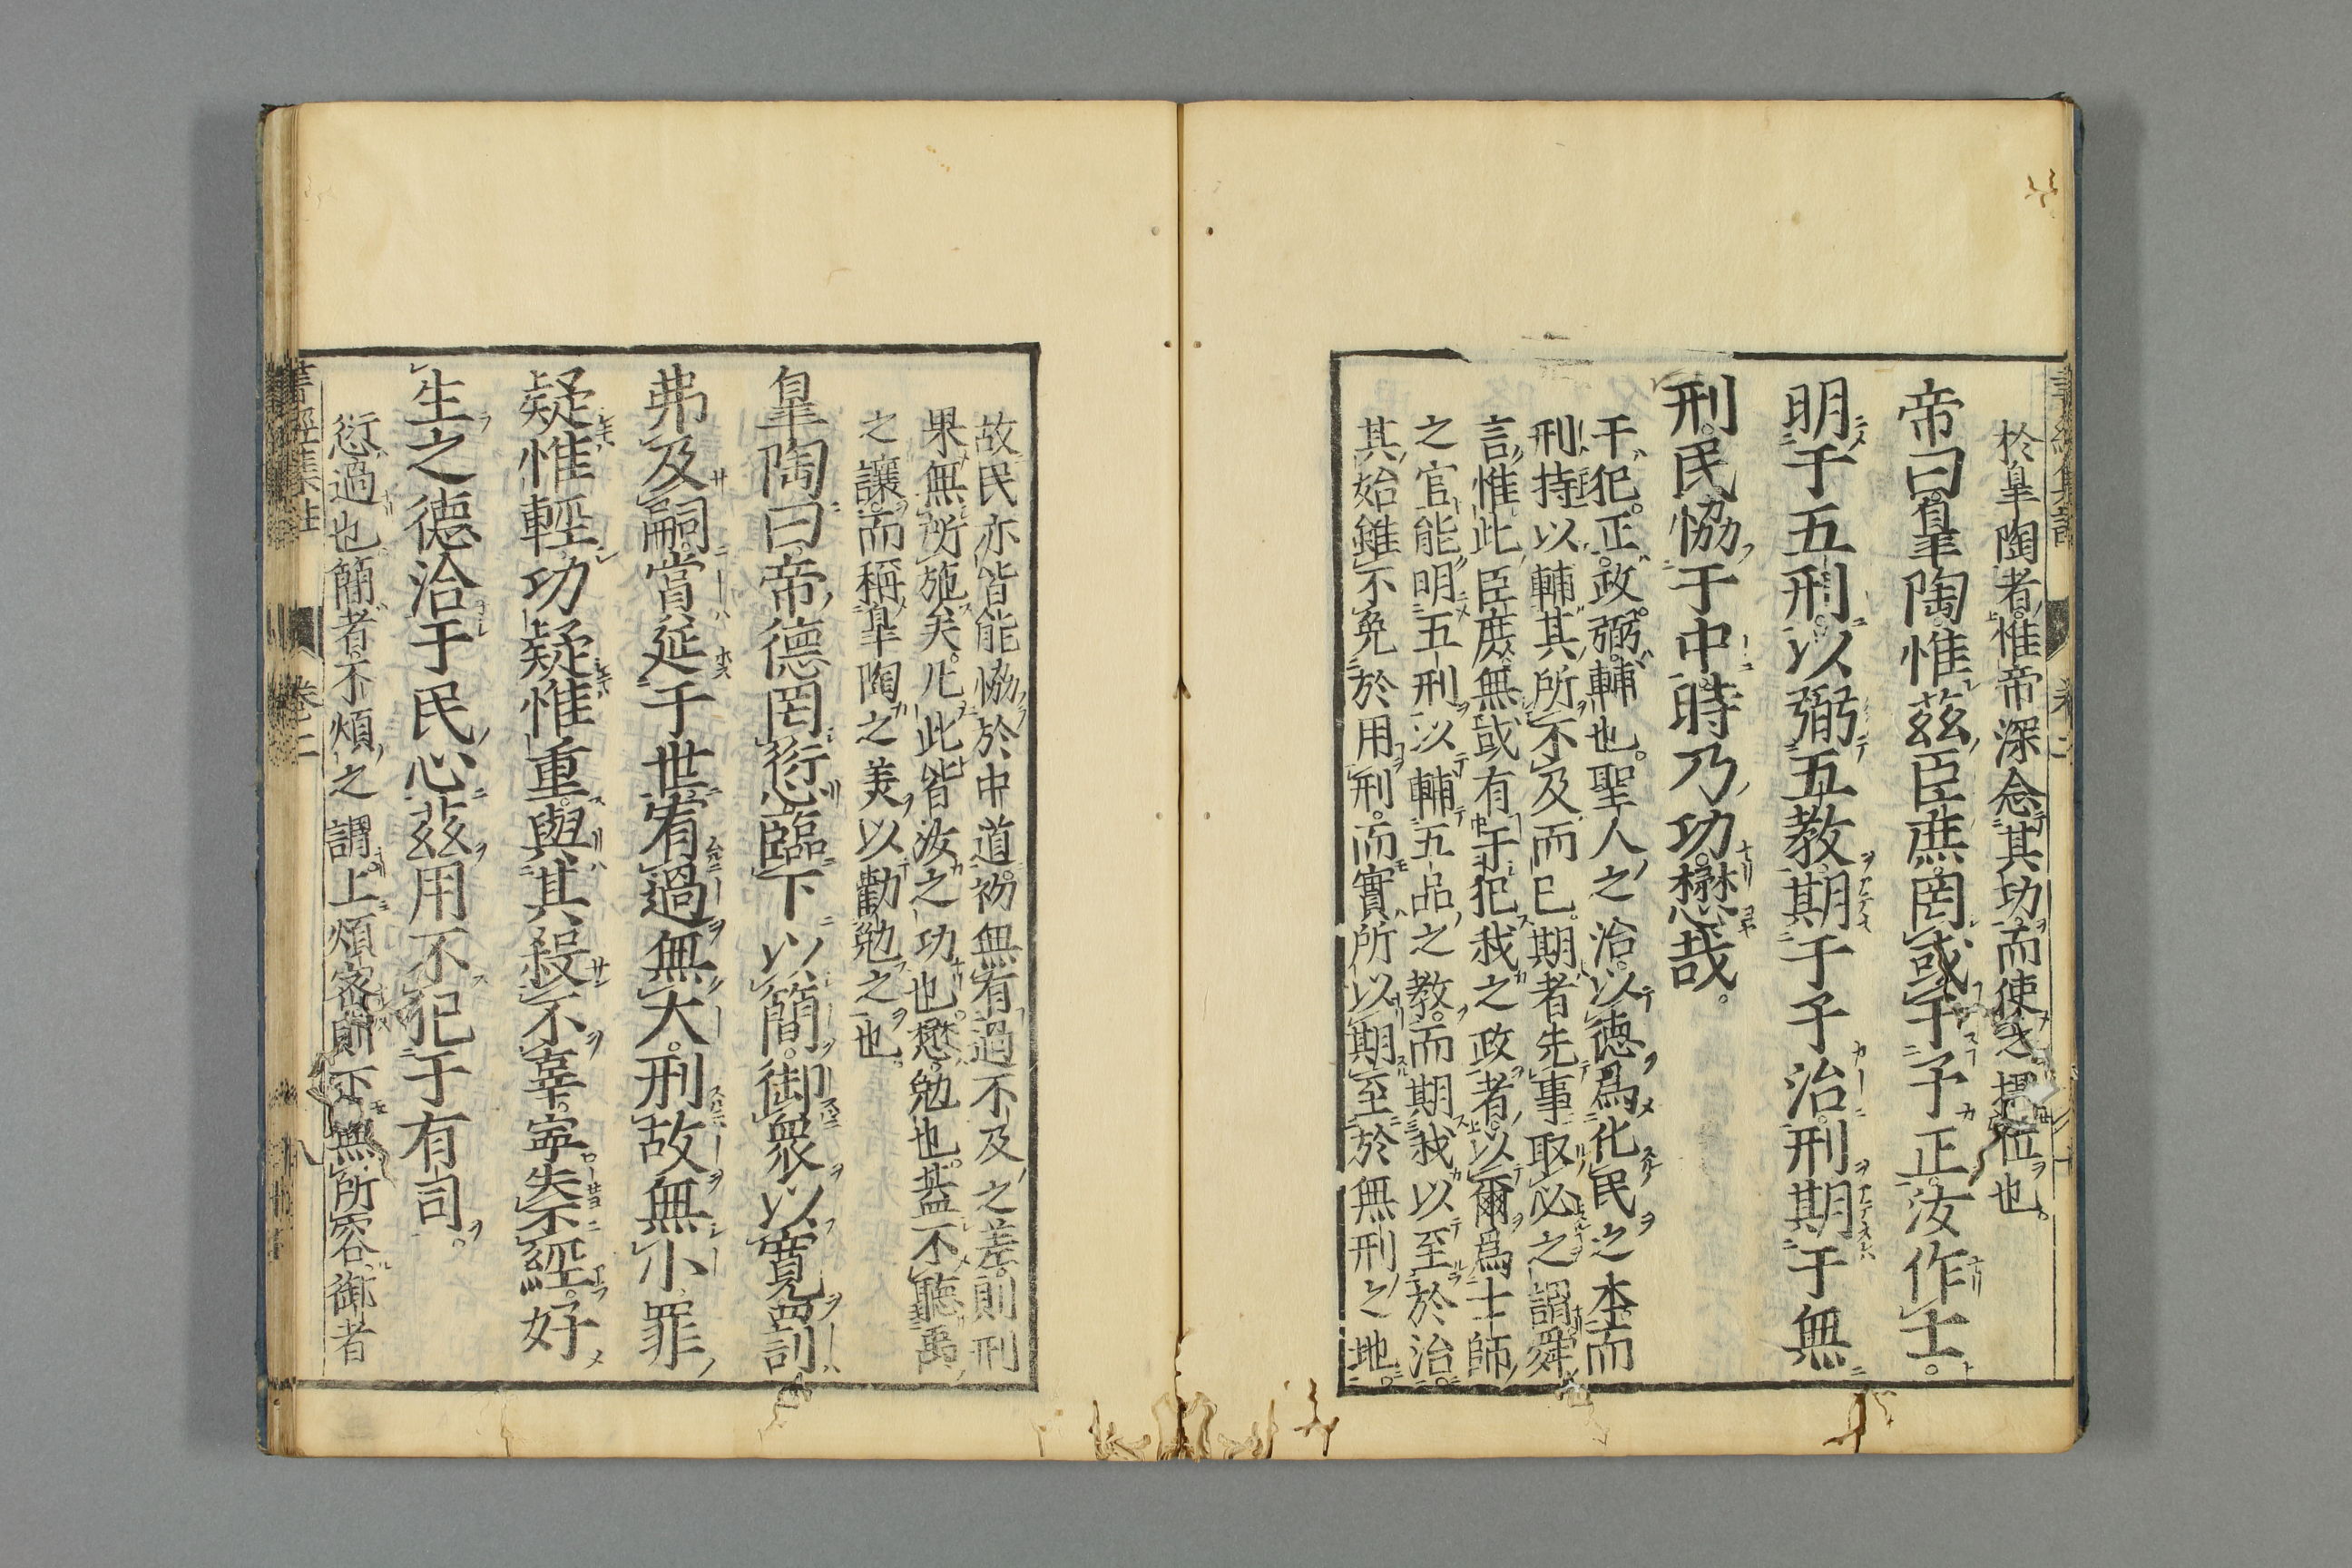 於皐陶者惟帝深念其功而使之攝位也
帝曰皐陶惟茲臣庶罔或干予正汝作士
明于五刑以弼五教期于予治刑期于無
刑民協于中時乃功懋哉
干犯正政弼輔也聖人之治以德爲化民之本而
刑特以輔其所不及而已期者先事取必之謂舜
言惟此臣庶無或有干犯我之政者以爾爲士師
之官能明五刑以輔五品之教而期我以至於治
其始雖不免於用刑而實所以期至於無刑之地
故民亦皆能恊於中道初無有過不及之差則刑
果無所施矣凢此皆汝之功也懋勉也蓋不聽禹
之讓而稱皐陶之美以勸勉之也
皐陶曰帝德罔愆臨下以簡御衆以寬罰
弗及嗣賞延于世宥過無大刑故無小罪
疑惟輕功疑惟重與其殺不辜寧失不經好
生之德洽于民心茲用不犯于有司
愆過也簡者不煩之謂上煩密則下無所容御者
書經集註 卷二 八